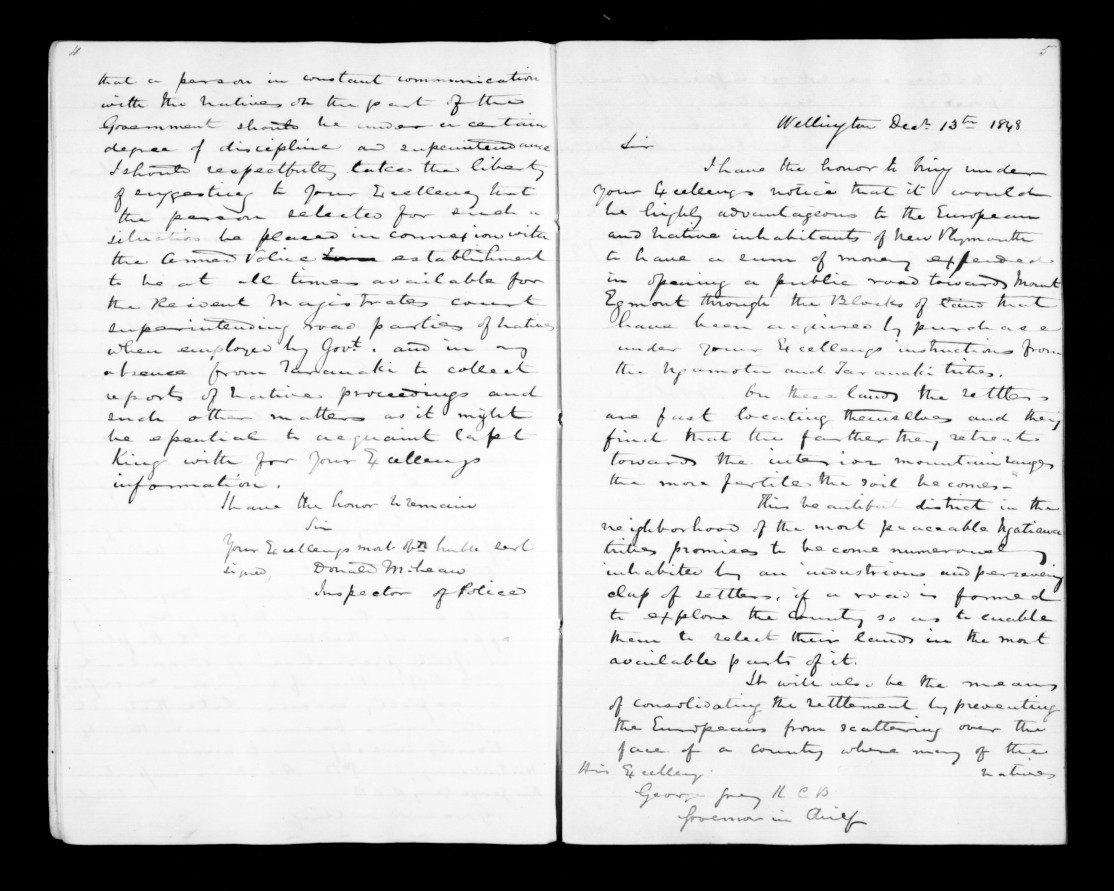 4
that a person in constant communication
with the natives on the part of the
Government should be under a certain
degree of discipline and superintendance
I should respectfully take the liberty
of suggesting to your Excellency that
the person selected for such a
situation be placed in connexion with
the Armed Police Force establishment
to be at all times available for
the Resident Magistrates court
superintending road parties of natives
when employed by Govt. and in my
absence from Taranaki to collect
reports of native proceedings and
such other matters as it might
be essential to acquaint Capt
King with for your Excellencys
information.
I have the honor to remain
Sir
Your Excellencys most obt humble servt
signed, Donald McLean
Inspector of Police
5
Wellington Decr. 13th 1848
Sir
I have the honor to bring under
your Excellencys notice that it would
be highly advantageous to the European
and native inhabitants of New Plymouth
to have a sum of money expended
in opening a public road towards Mount
Egmont through the Blocks of land that
have been acquired by purchase
under your Excellencys instructions from
the Ngamotu and Taranaki tribes.
On these lands the settlers
are fast locating themselves and they
find that the farther they retreat
towards the interior mountain ranges
the more fertile the soil becomes.
This beautiful district in the
neighborhood of the most peaceable Ngatiawa
tribes promises to become numerously
inhabited by an industrious and persevering
class of settlers, if a road is formed
to explore the country so as to enable
them to select their lands in the most
available parts of it.
It will also be the means
of consolidating the settlement by preventing
the Europeans from scattering over the
face of a country where many of the
natives
His Excellency
George Grey K C B
Governor in Chief